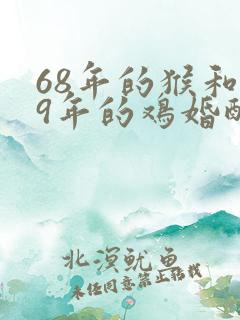 68年的猴和
9年的鸡婚配
北溟鱿鱼
未经同意禁止转载